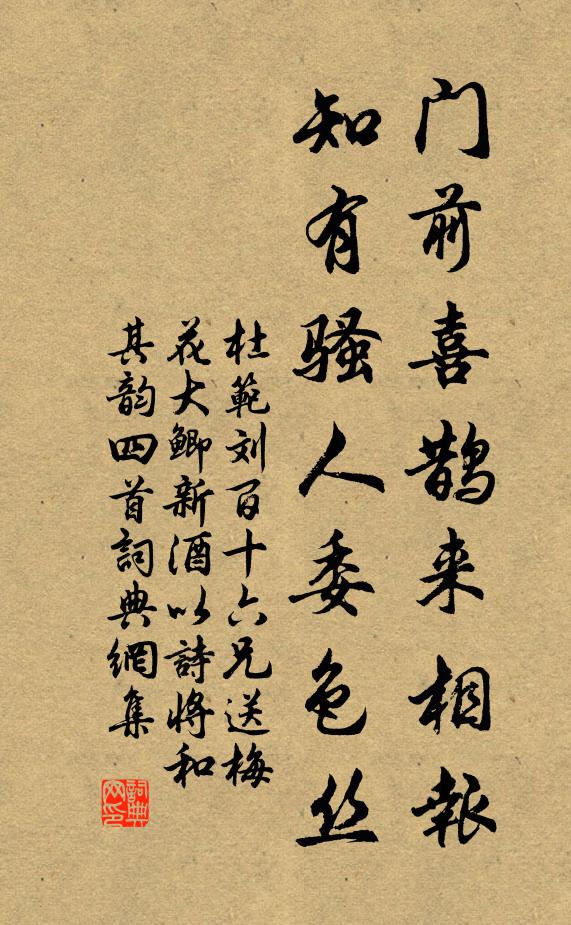 门前喜鹊来相報
知有骚人委色丝
杜範刘百十六兄送梅
花大鲫新酒以詩将和
其韵四首詞典網集
詞典网印